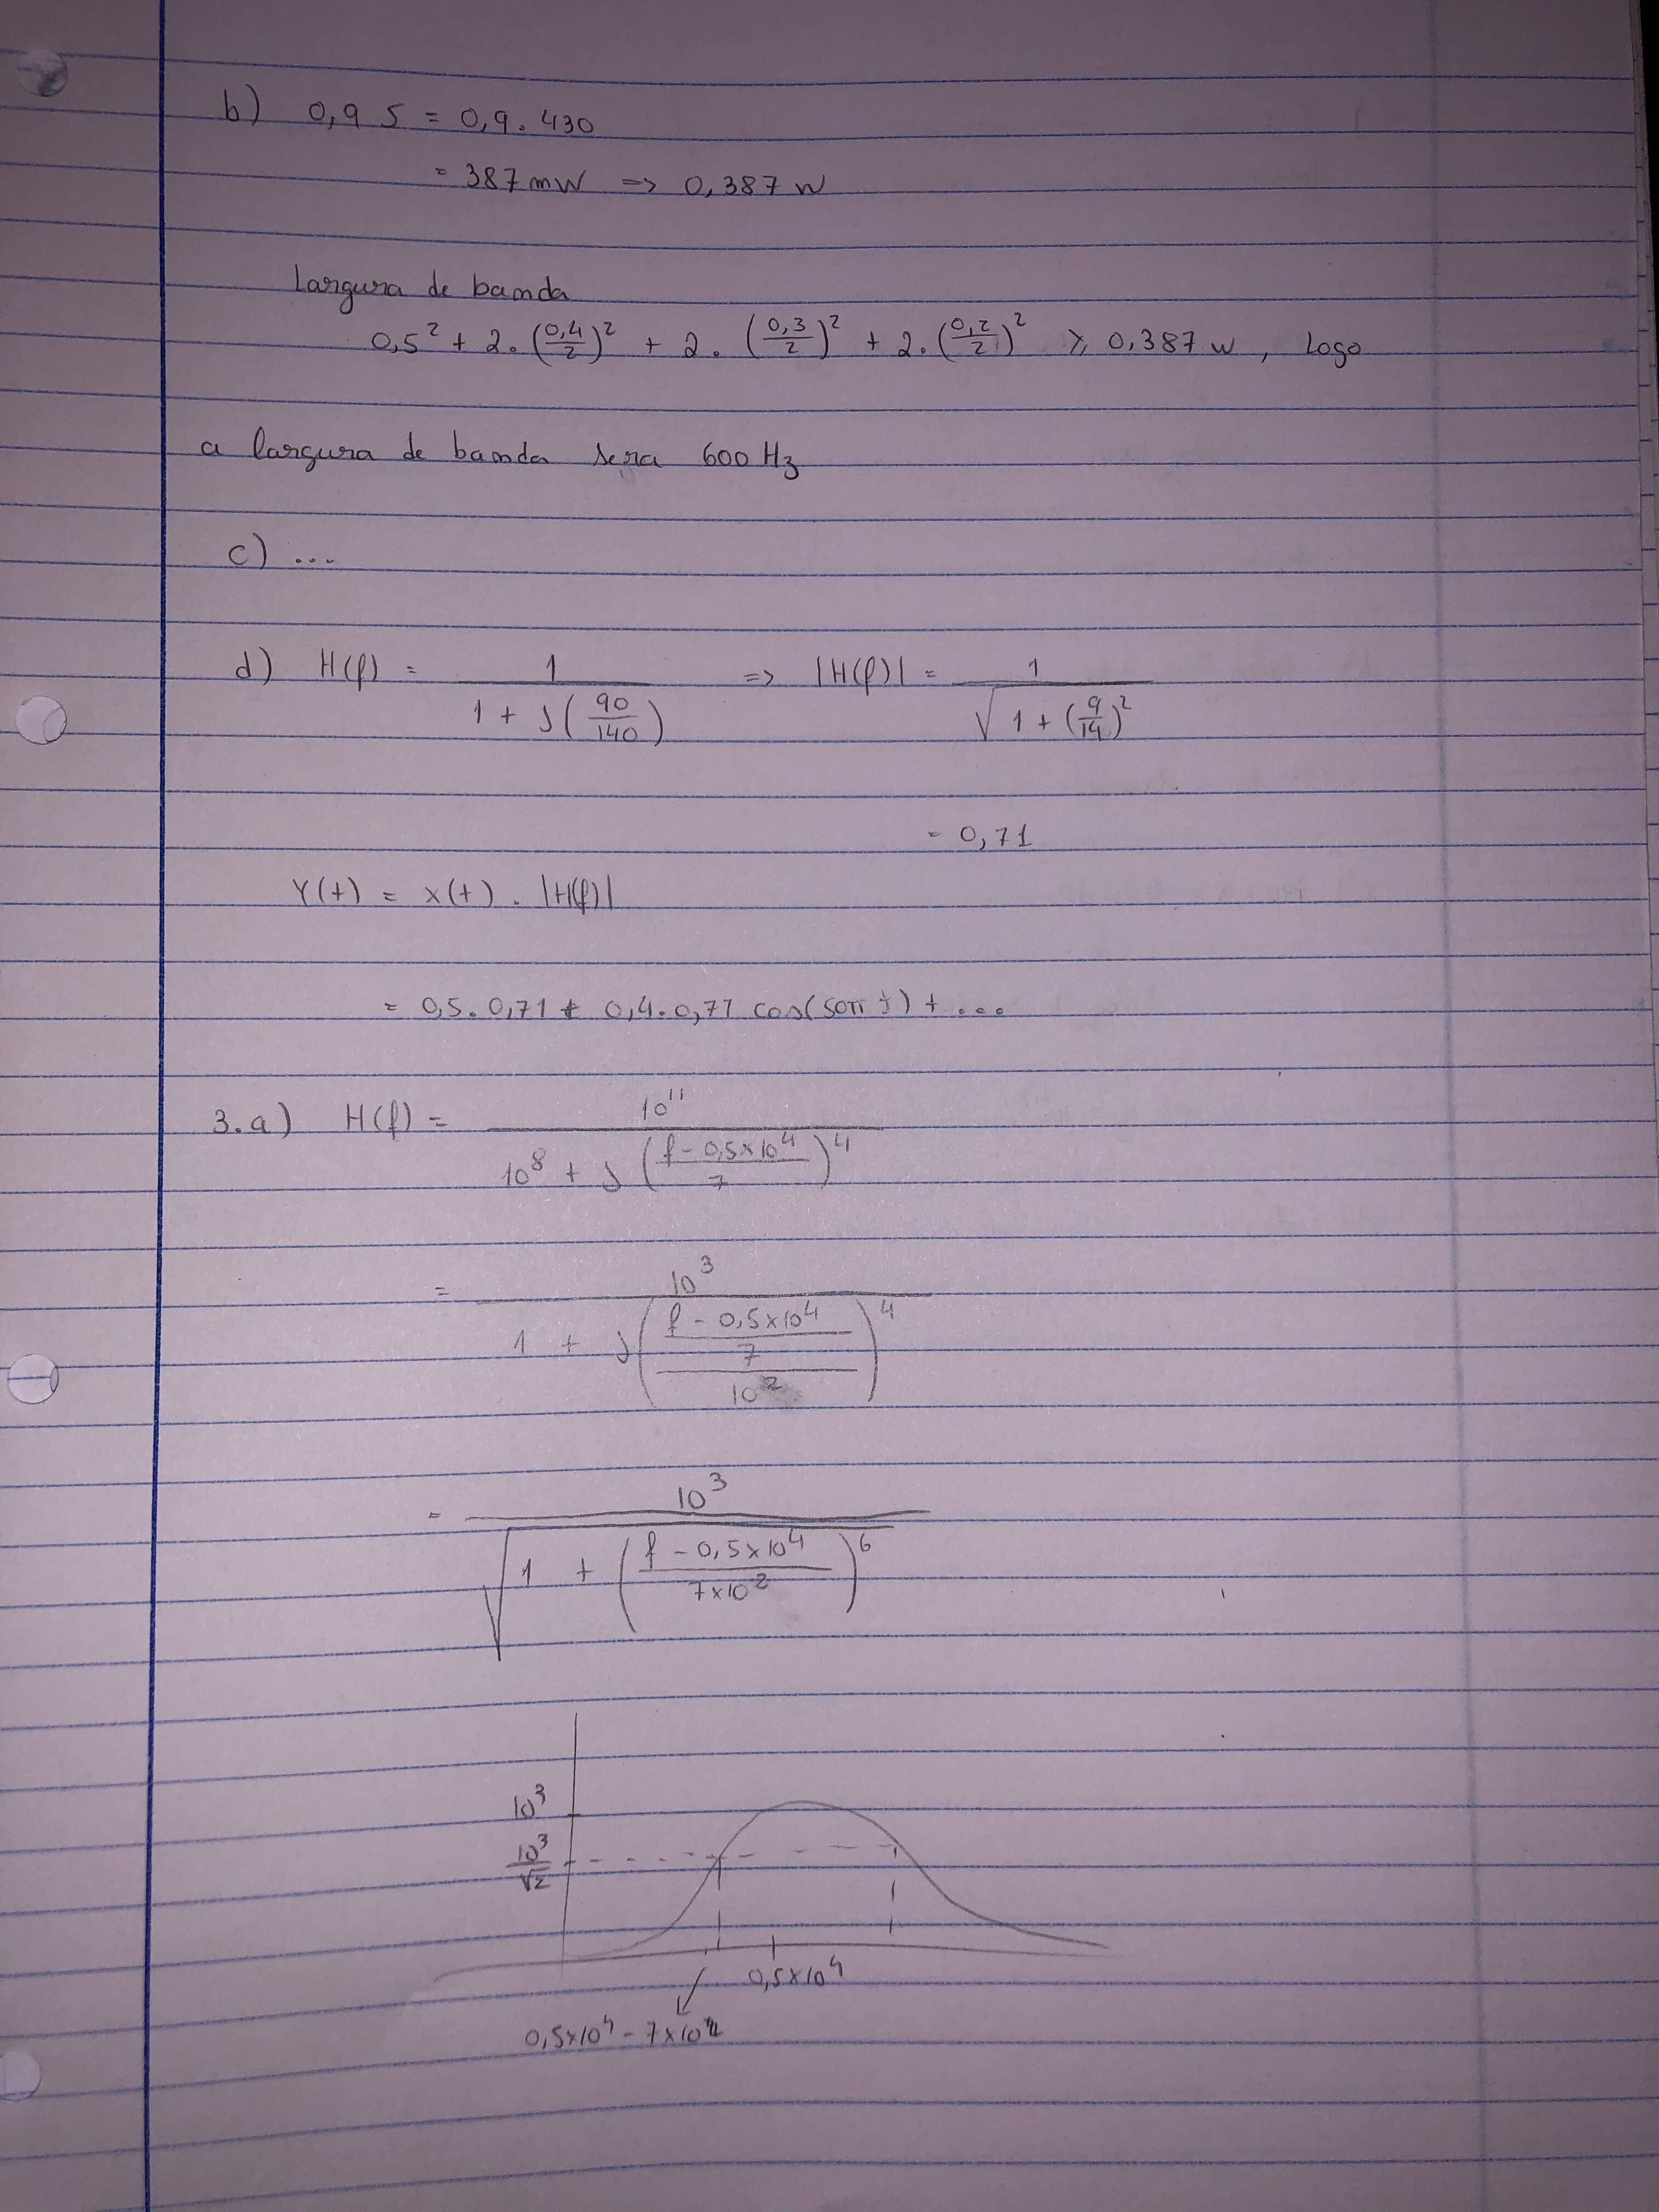 b) 0,9 S = 0,9 . 430
= 387 mW => 0,387 W
Largura de banda
0,5² + 2.(0,4/2)² + 2.(0,3/2)² + 2.(0,2/2)² ⩾ 0,387 W, Logo
a largura de banda sera 600 Hz
c) ...
d) H(f) = 1/(1 + J(90/140)) => |H(f)| = 1/√(1 + (9/14)²)
= 0,71
Y(t) = X(t) . |H(f)|
= 0,5 . 0,71 + 0,4 . 0,71 cos(50π t) + ...
3. a) H(f) = 10¹¹/(10⁸ + J((f - 0,5×10⁴)/7)⁴)
= 10³/(1 + J(((f - 0,5×10⁴)/7)/10²)⁴)
= 10³/√(1 + ((f - 0,5×10⁴)/(7×10²))⁶)
10³
10³/√2
0,5×10⁴
0,5×10⁴ - 7×10